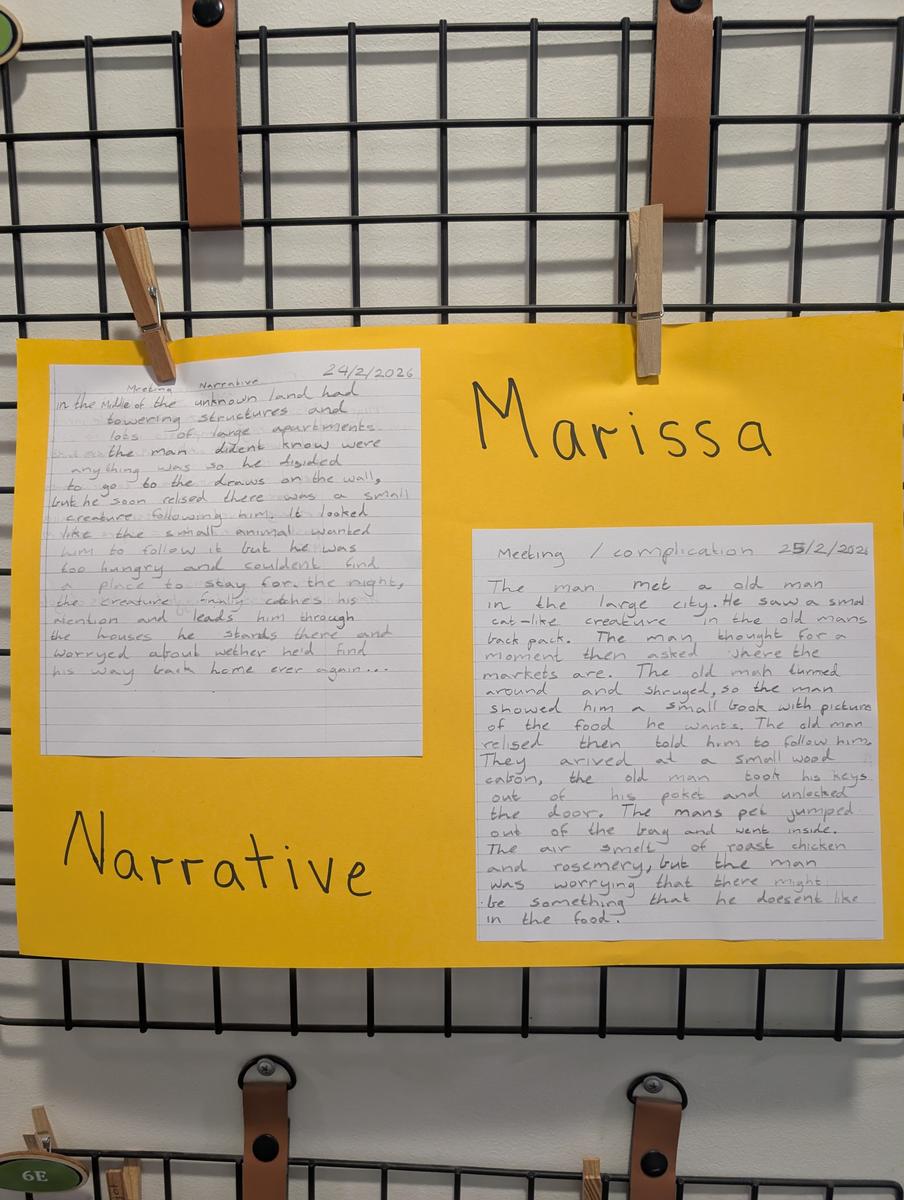 24/2/2026
Meeting Narrative
in the Middle of the unknown land had
towering structures and
lots of large apartments
the man dident know were
anything was so he disided
to go to the draws on the wall,
but he soon relised there was a small
creature following him. It looked
like the small animal wanted
him to follow it but he was
too hungry and couldent find
a place to stay for. the night,
the creature finally catches his
atention and leads him through
the houses he stands there and
worryed about wether he'd find
his way back home ever again...
Narrative
Marissa
Meeting / complication 25/2/202
The man met a old man
in the large city. He saw a small
cat-like creature in the old mans
back pack. The man thought for a
moment then asked where the
markets are. The old man turned
around and shruged, so the man
showed him a small book with picture
of the food he wants. The old man
relised then told him to follow him.
They arived at a small wood
cabon, the old man took his keys
out of his poket and unlocked
the door. The mans pet jumped
out of the bag and went inside.
The air smelt of roast chicken
and rosemery, but the man
was worrying that there might
be something that he doesent like
in the food.
6E